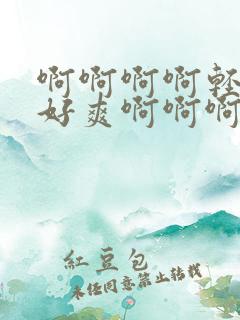 啊啊啊啊轻
好爽啊啊啊
紅豆包
未经同意禁止转载